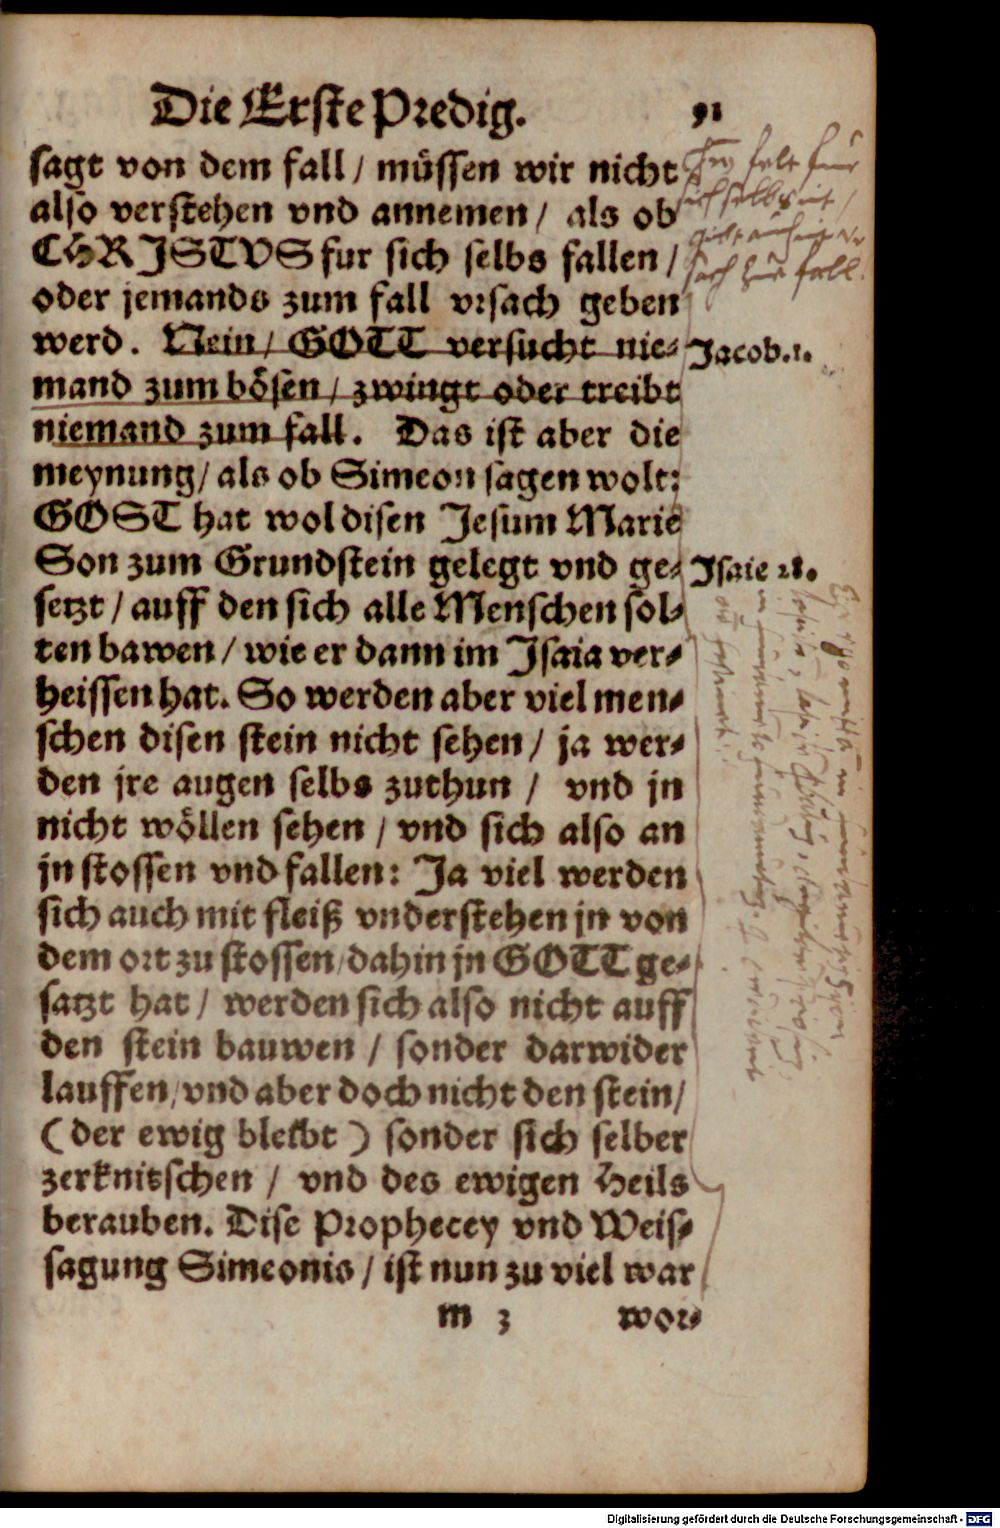 Die Erste Predig. 91
sagt von dem fall / müssen wir nicht
also verstehen vnd annemen / als ob
CHRJSTVS fur sich selbs fallen /
oder jemands zum fall vrsach geben
werd. Nein / GOTT versucht nie-
Jacob. 1.
mand zum bösen / zwingt oder treibt
niemand zum fall. Das ist aber die
meynung / als ob Simeon sagen wolt:
GOST hat wol disen Jesum Marie
Son zum Grundstein gelegt vnd ge-
Jsaie 28.
setzt / auff den sich alle Menschen sol-
ten bawen / wie er dann im Jsaia ver-
heissen hat. So werden aber viel men-
schen disen stein nicht sehen / ja wer-
den jre augen selbs zuthun / vnd jn
nicht wöllen sehen / vnd sich also an
jn stossen vnd fallen: Ja viel werden
sich auch mit fleiß vnderstehen jn von
dem ort zu stossen / dahin jn GOTT ge-
satzt hat / werden sich also nicht auff
den stein bauwen / sonder darwider
lauffen / vnd aber doch nicht den stein /
( der ewig bleibt ) sonder sich selber
zerknitschen / vnd des ewigen Heils
berauben. Dise Prophecey vnd Weis-
sagung Simeonis / ist nun zu viel war
m 3 wor-
Digitalisierung gefördert durch die Deutsche Forschungsgemeinschaft - DFG